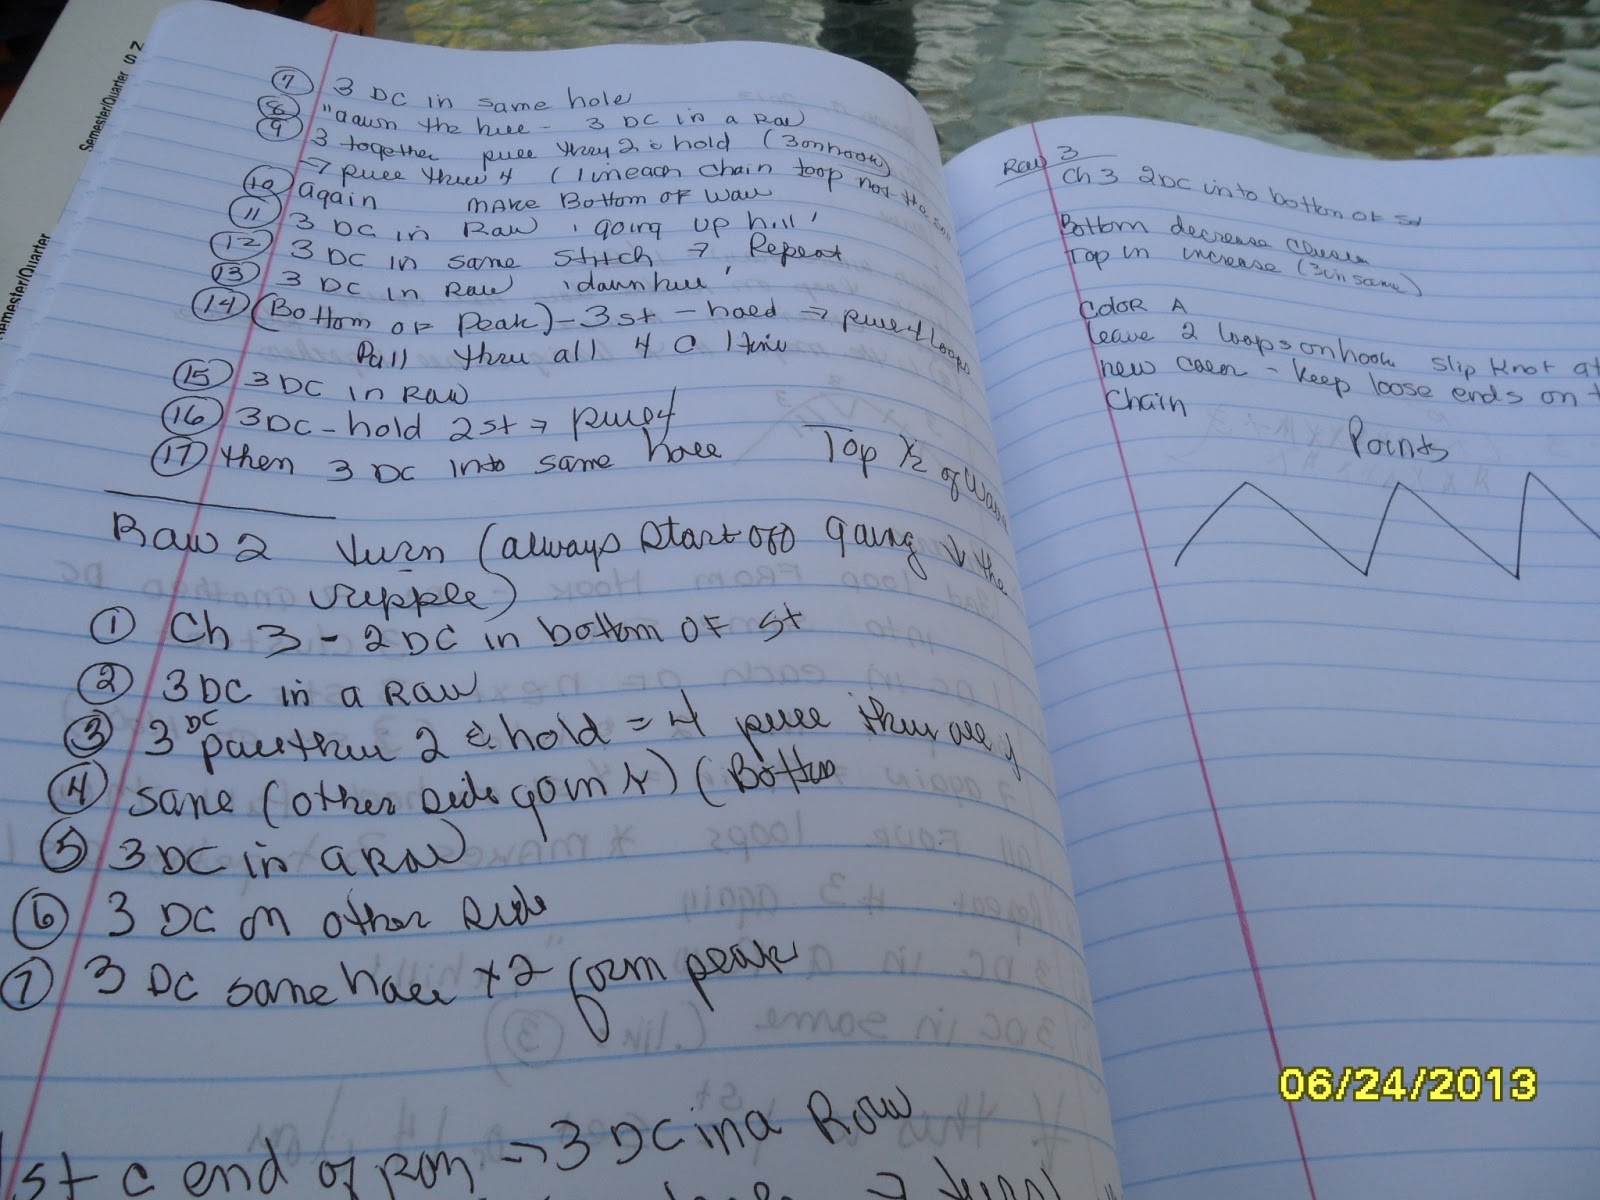 Semester/Quarter S N
Semester/Quarter
7 3 DC in same hole
8 "down the hill - 3 DC in a Row
9 3 together pull thru 2 & hold (3 on hook)
→ pull thru 4 (1 in each chain loop not the same
10 again make Bottom of Wave
11 3 DC in Row 'going up hill'
12 3 DC in same stitch → Repeat
13 3 DC in Row 'down hill'
14 (Bottom of Peak) - 3 st - hold → pull 4 loops
Pull thru all 4 @ 1 time
15 3 DC in Row
16 3 DC - hold 2 st → pull 4
17 then 3 DC into same hole
Top 1/2 of Wave
Row 2 turn (always start off going ↓ the
ripple)
1 Ch 3 - 2 DC in bottom of st
2 3 DC in a Row
3 3 DC pull thru 2 & hold = 4 pull thru all 4
4 same (other side goin ) (Bottom
5 3 DC in a Row
6 3 DC on other side
7 3 DC same hole x2 form peak
st @ end of row → 3 DC in a Row
→ turn
Row 3
Ch 3 2DC into bottom of st
Bottom decrease
Top in increase (3 in same)
Color A
leave 2 loops on hook slip knot at
new color - keep loose ends on
Chain
Points
06/24/2013